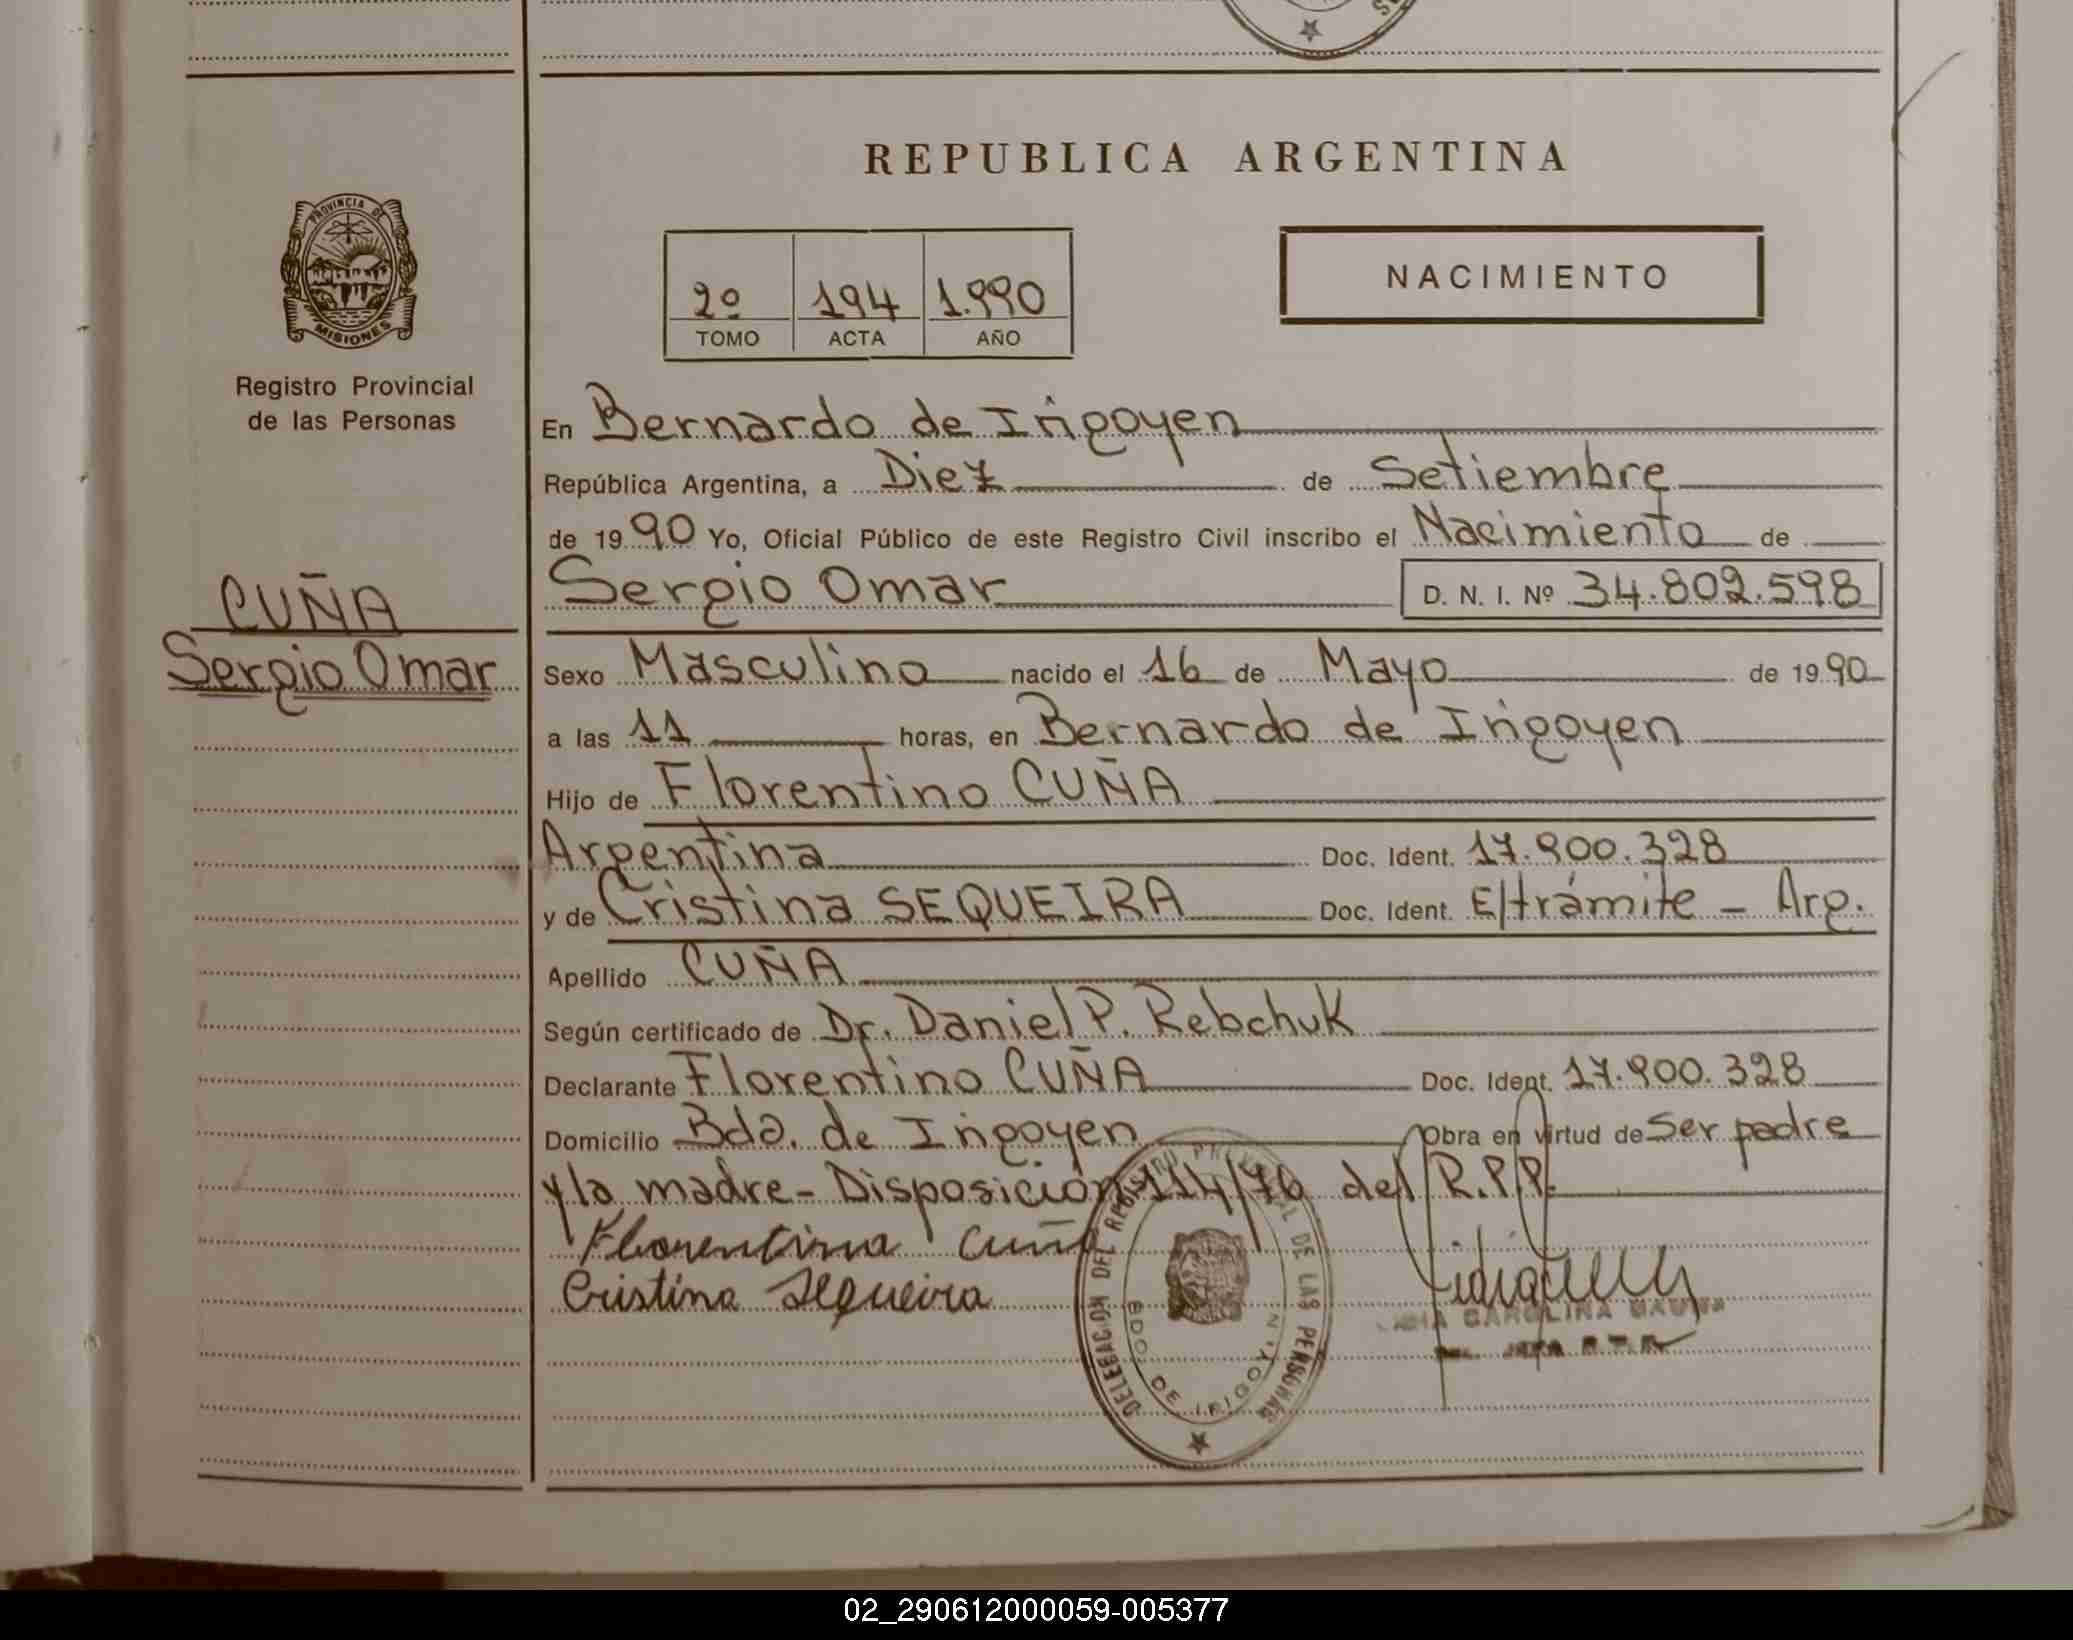 REPUBLICA ARGENTINA
PROVINCIA DE MISIONES
Registro Provincial
de las Personas
2º 194 1.990
TOMO ACTA AÑO
NACIMIENTO
CUÑA
Sergio Omar
En Bernardo de Irigoyen
República Argentina, a Diez de Setiembre
de 1990 Yo, Oficial Público de este Registro Civil inscribo el Nacimiento de
Sergio Omar D. N. I. Nº 34.802.598
Sexo Masculino nacido el 16 de Mayo de 1990
a las 11 horas, en Bernardo de Irigoyen
Hijo de Florentino CUÑA
Argentina Doc. Ident. 17.900.328
y de Cristina SEQUEIRA Doc. Ident. E/trámite - Arg.
Apellido CUÑA
Según certificado de Dr. Daniel P. Rebchuk
Declarante Florentino CUÑA Doc. Ident. 17.900.328
Domicilio Bdo. de Irigoyen Obra en virtud de Ser padre
y la madre - Disposición 114/76 del R.P.P.
Florentino Cuña
Cristina Sequeira
DELEGACION DEL REGISTRO PROVINCIAL DE LAS PERSONAS
BDO. DE IRIGOYEN
CAROLINA
02_290612000059-005377